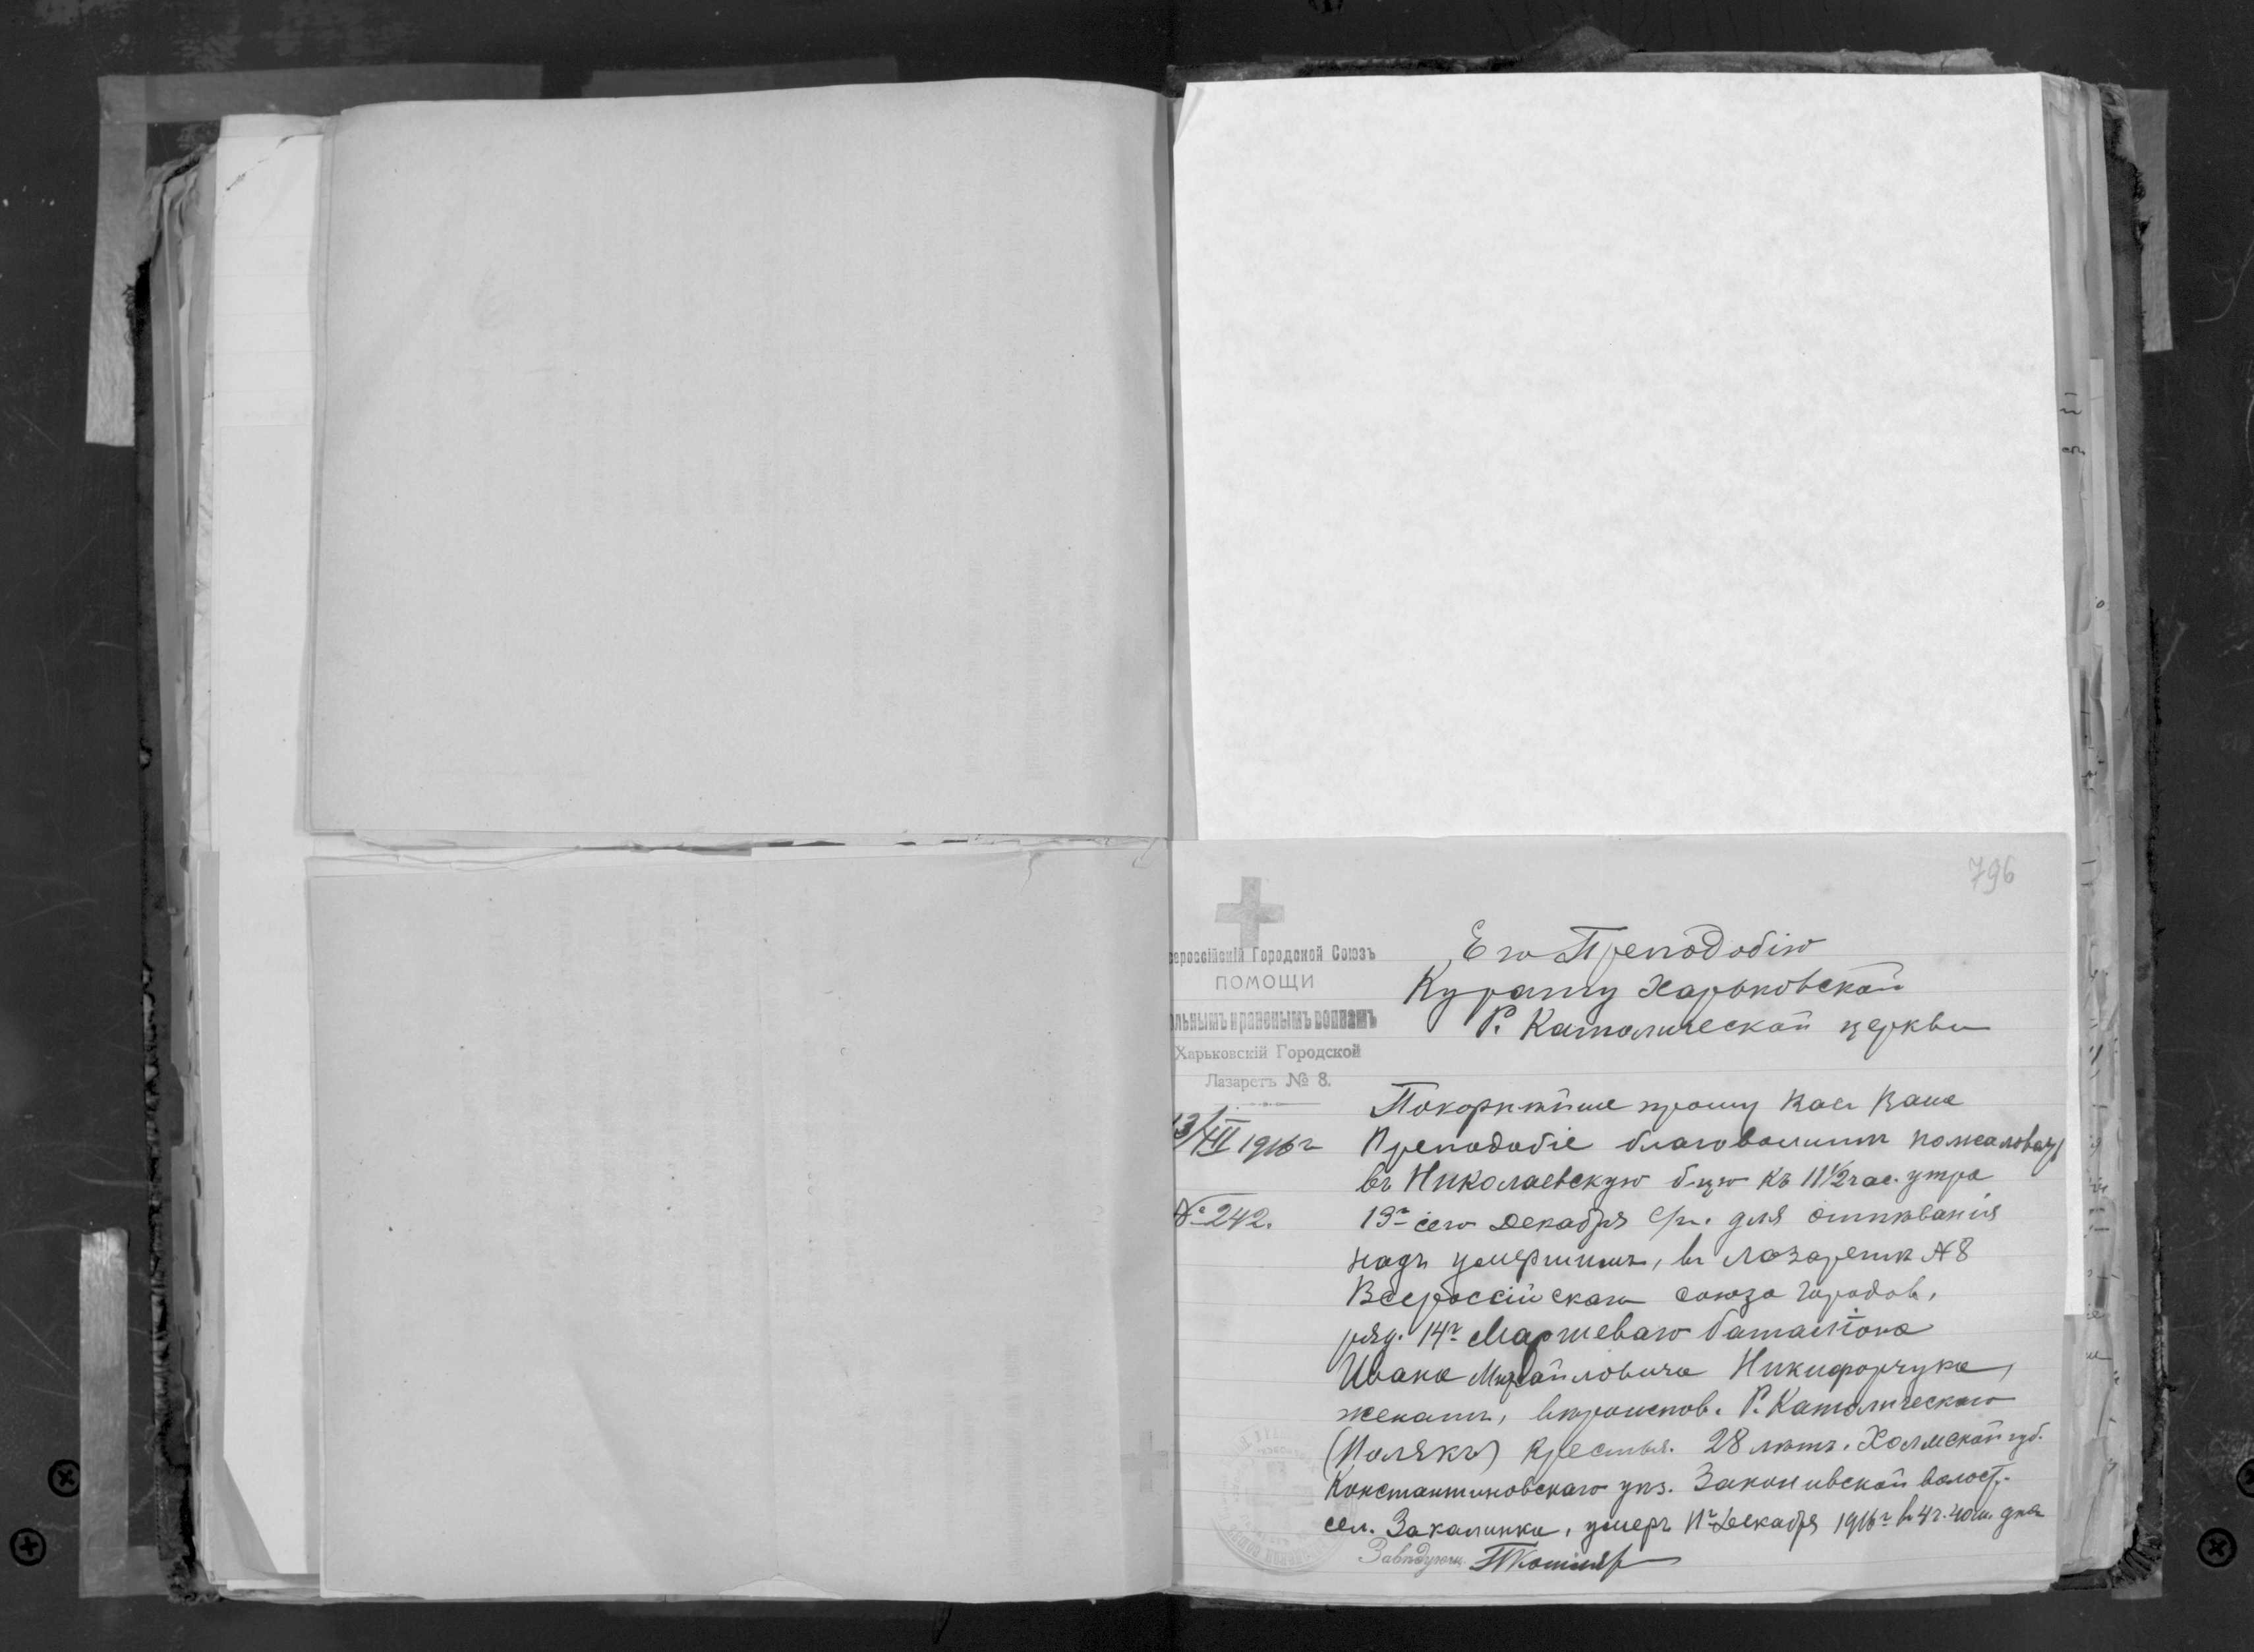 796
Всероссійскій Городской Союзъ
ПОМОЩИ
больнымъ и раненымъ воинамъ
Харьковскій Городской
Лазаретъ № 8.
13/XII 1916 г
№ 242.
Его Преподобію
Курату Харьковской
Р. Католической церкви
Покорнѣйше прошу Васъ Ваше
Преподобіе благоволить пожаловать
въ Николаевскую б-цу къ 11 1/2 час. утра
13го сего Декабря с/г. для отпѣванія
надъ умершимъ, въ Лазаретѣ № 8
Всероссійскаго союза городов,
ряд. 14го Маршеваго баталіона
Ивана Михайловича Никифорчука,
женатъ, вѣроиспов. Р. Католическаго
(Полякъ) крестьян. 28 лѣтъ. Холмской губ.
Константиновскаго уѣз. волост.
сел. Закалинки, умеръ 11го Декабря 1916 г в 4 ч. 40 м. дня
Завѣдующ.